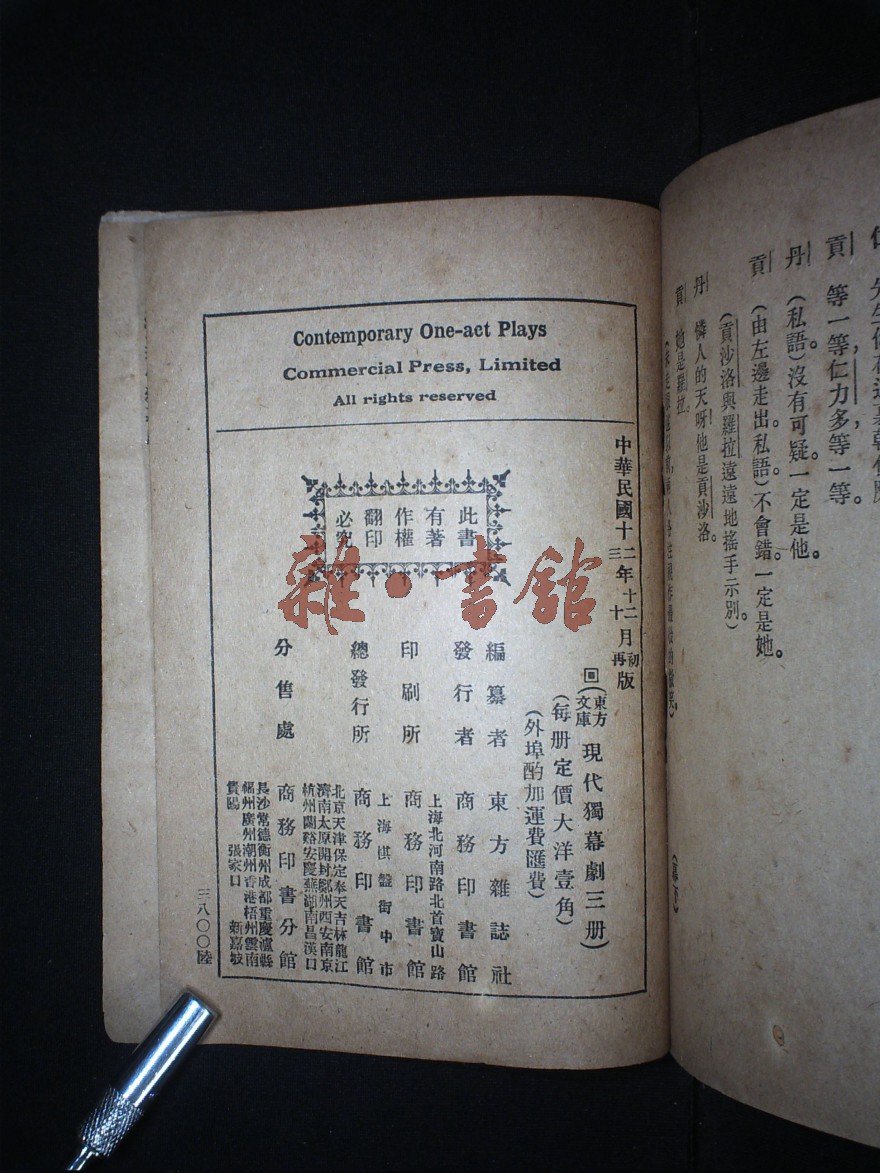 Contemporary One-act Plays
Commercial Press, Limited
All rights reserved
中華民國十二年十二月初版
三 十 再
此書
有著
作權
翻印
必究
回(東方文庫)現代獨幕劇三册)
(每册定價大洋壹角)
(外埠酌加運費匯費)
編纂者 東方雜誌社
發行者 商務印書館
上海北河南路北首寶山路
印刷所 商務印書館
上海棋盤街中市
總發行所 商務印書館
北京天津保定奉天吉林龍江
濟南太原開封鄭州西安南京
杭州蘭谿安慶蕪湖南昌漢口
分售處 商務印書分館
長沙常德衡州成都重慶瀘縣
福州廣州潮州香港梧州雲南
貴陽 張家口 新嘉坡
三八〇〇陸
雜·書館
貢 等一等仁力多等一等。
丹 (私語)沒有可疑一定是他。
貢 (由左邊走出私語)不會錯。一定是她。
(貢沙洛與羅拉遠遠地搖手示別)
丹 憐人的天呀!他是貢沙洛。
貢 她是羅拉。